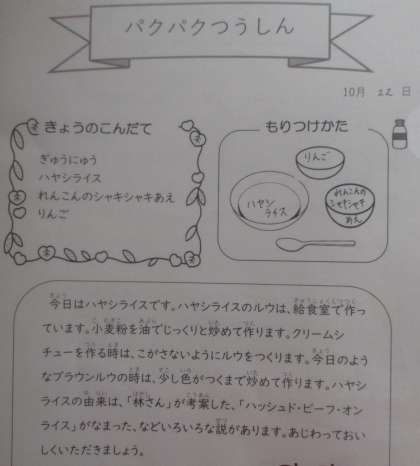 パクパクつうしん
10月 22 日
きょうのこんだて
ぎゅうにゅう
ハヤシライス
れんこんのシャキシャキあえ
りんご
もりつけかた
りんご
ハヤシ
ライス
れんこんの
シャキシャキ
あえ
今日はハヤシライスです。ハヤシライスのルウは、給食室で作っ
ています。小麦粉を油でじっくりと炒めて作ります。クリームシ
チューを作る時は、こがさないようにルウをつくります。今日のよう
なブラウンルウの時は、少し色がつくまで炒めて作ります。ハヤシ
ライスの由来は、「林さん」が考案した、「ハッシュド・ビーフ・オン
ライス」がなまった、などいろいろな説があります。あじわっておい
しくいただきましょう。